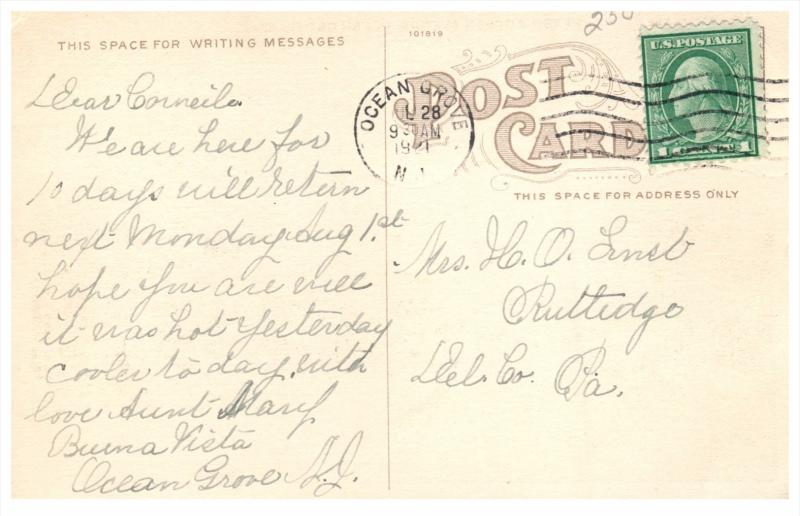 THIS SPACE FOR WRITING MESSAGES
Dear Corneila
We are here for
10 days will return
next Monday Aug 1.st
hope you are well
it was hot yesterday
cooler to day. with
love Aunt Mary
Buena Vista
Ocean Grove N.J.
101819
230
POST
CARD
OCEAN GROVE
L 28
930AM
1921
N.J.
U.S. POSTAGE
1 1
THIS SPACE FOR ADDRESS ONLY
Mrs. H. O. Ernst
Ruttledge
Del. Co. Pa.